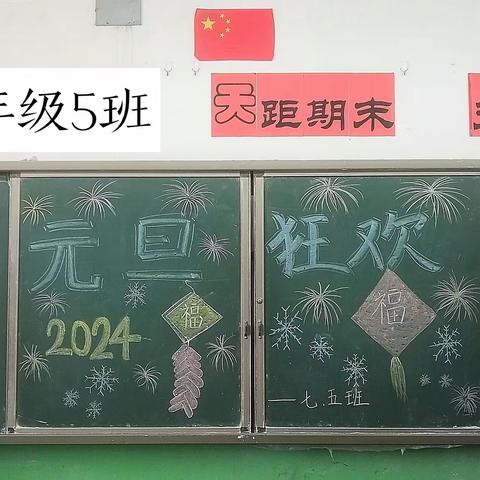 年级5班
天距期末
元旦 狂欢
福
福
2024
——七.五班